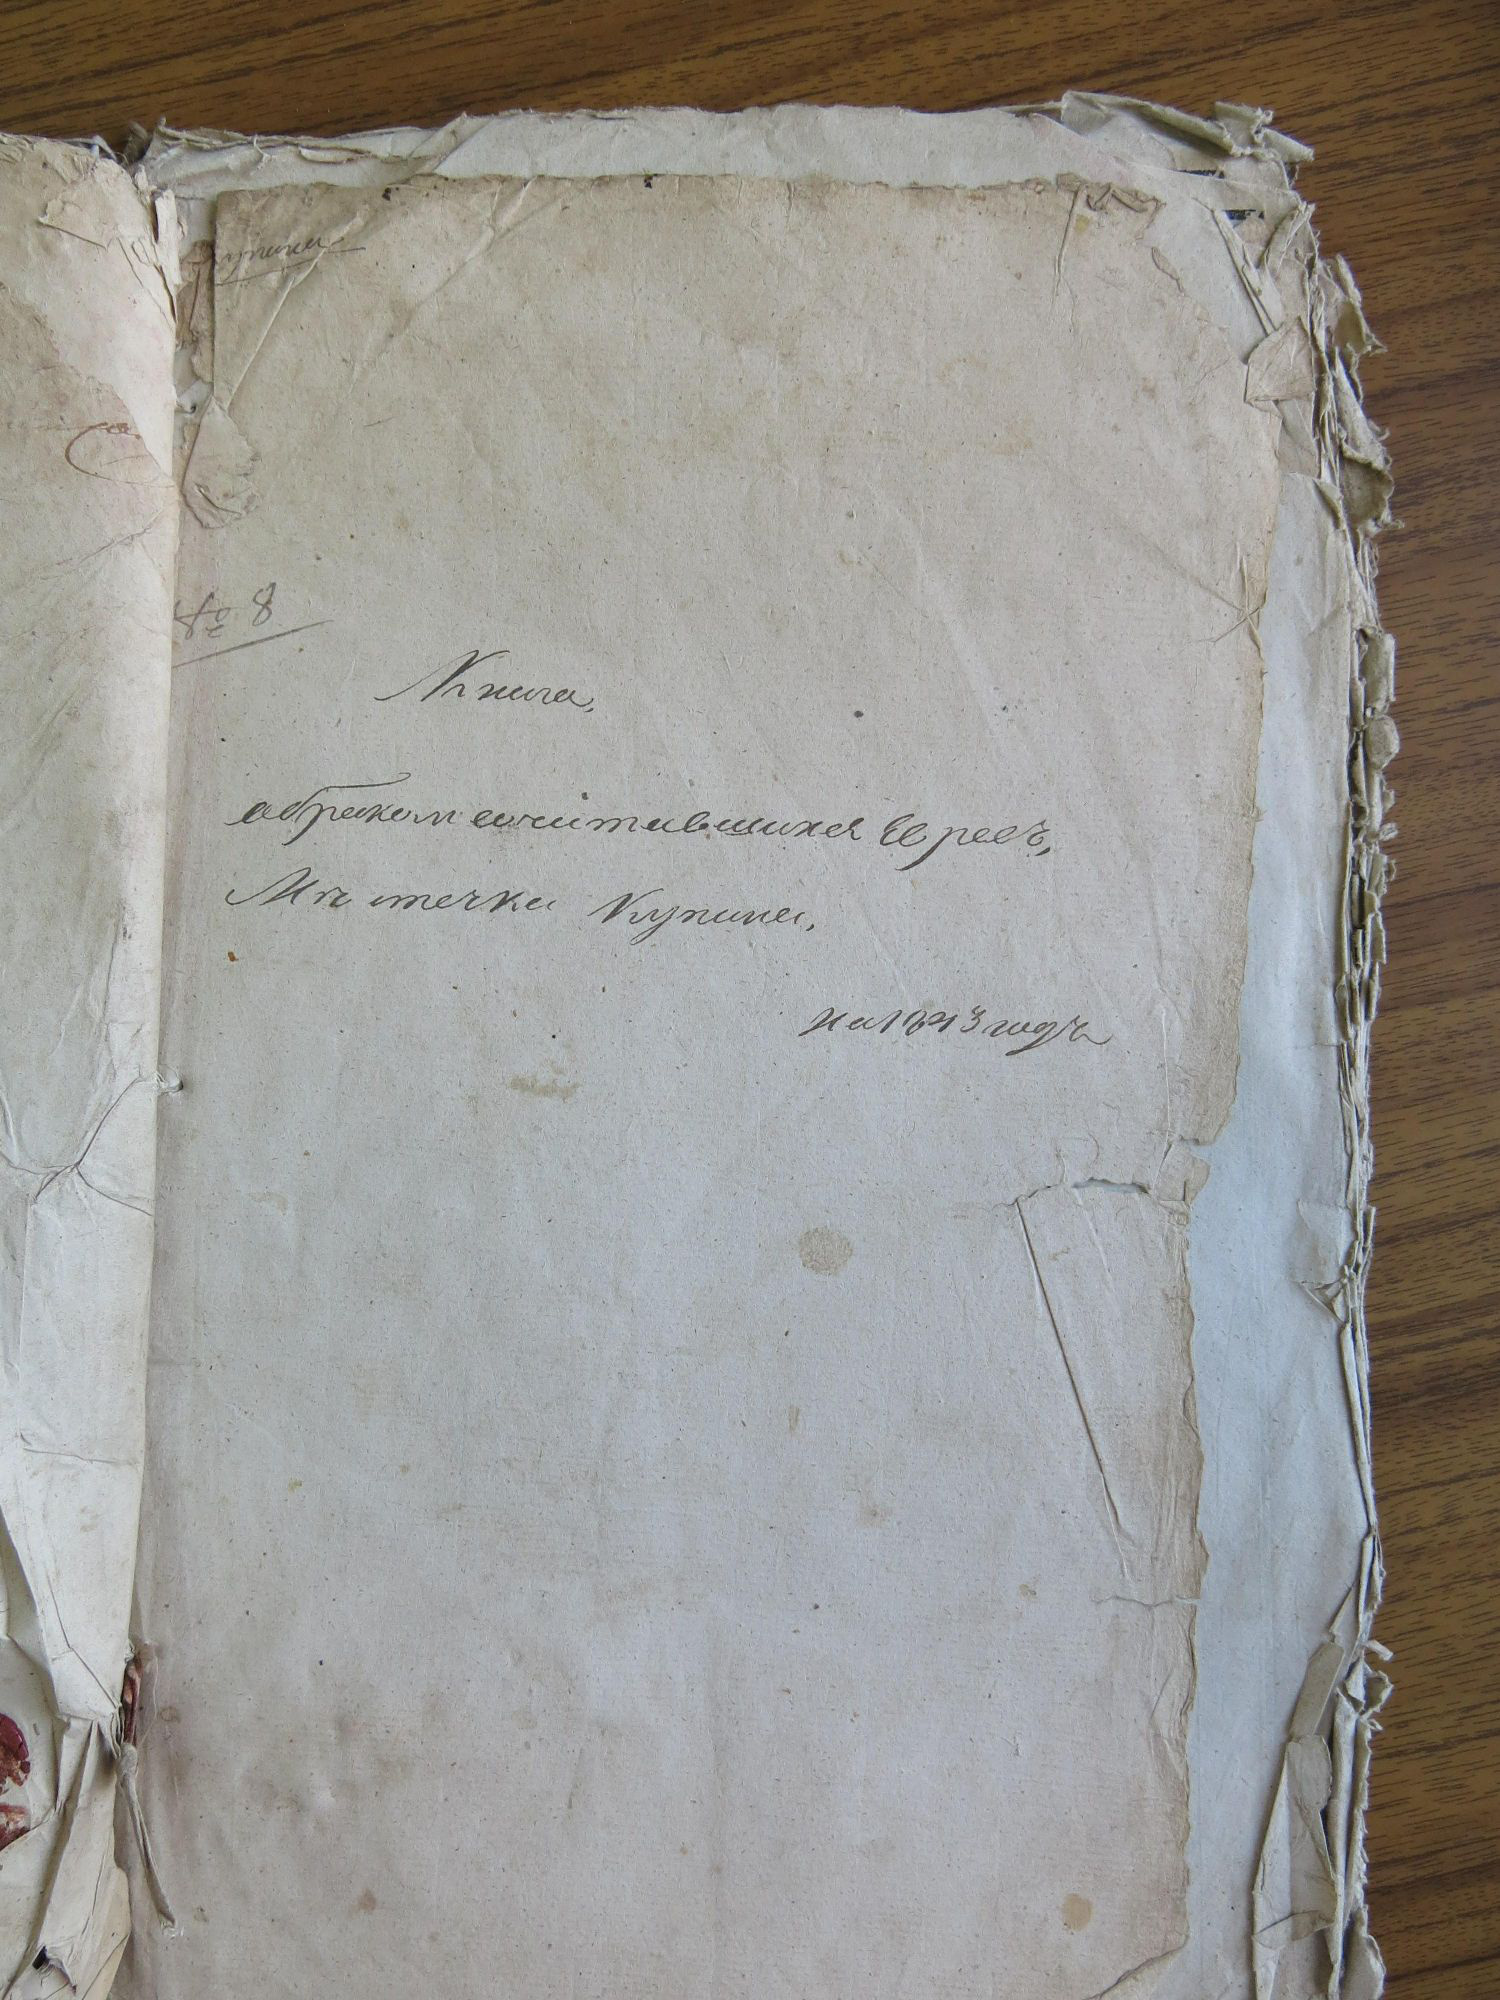 Купина
№ 8
Книга,
абракомъ сочитавшихся Евреевъ,
Мѣстечка Купина,
на 1843 годъ